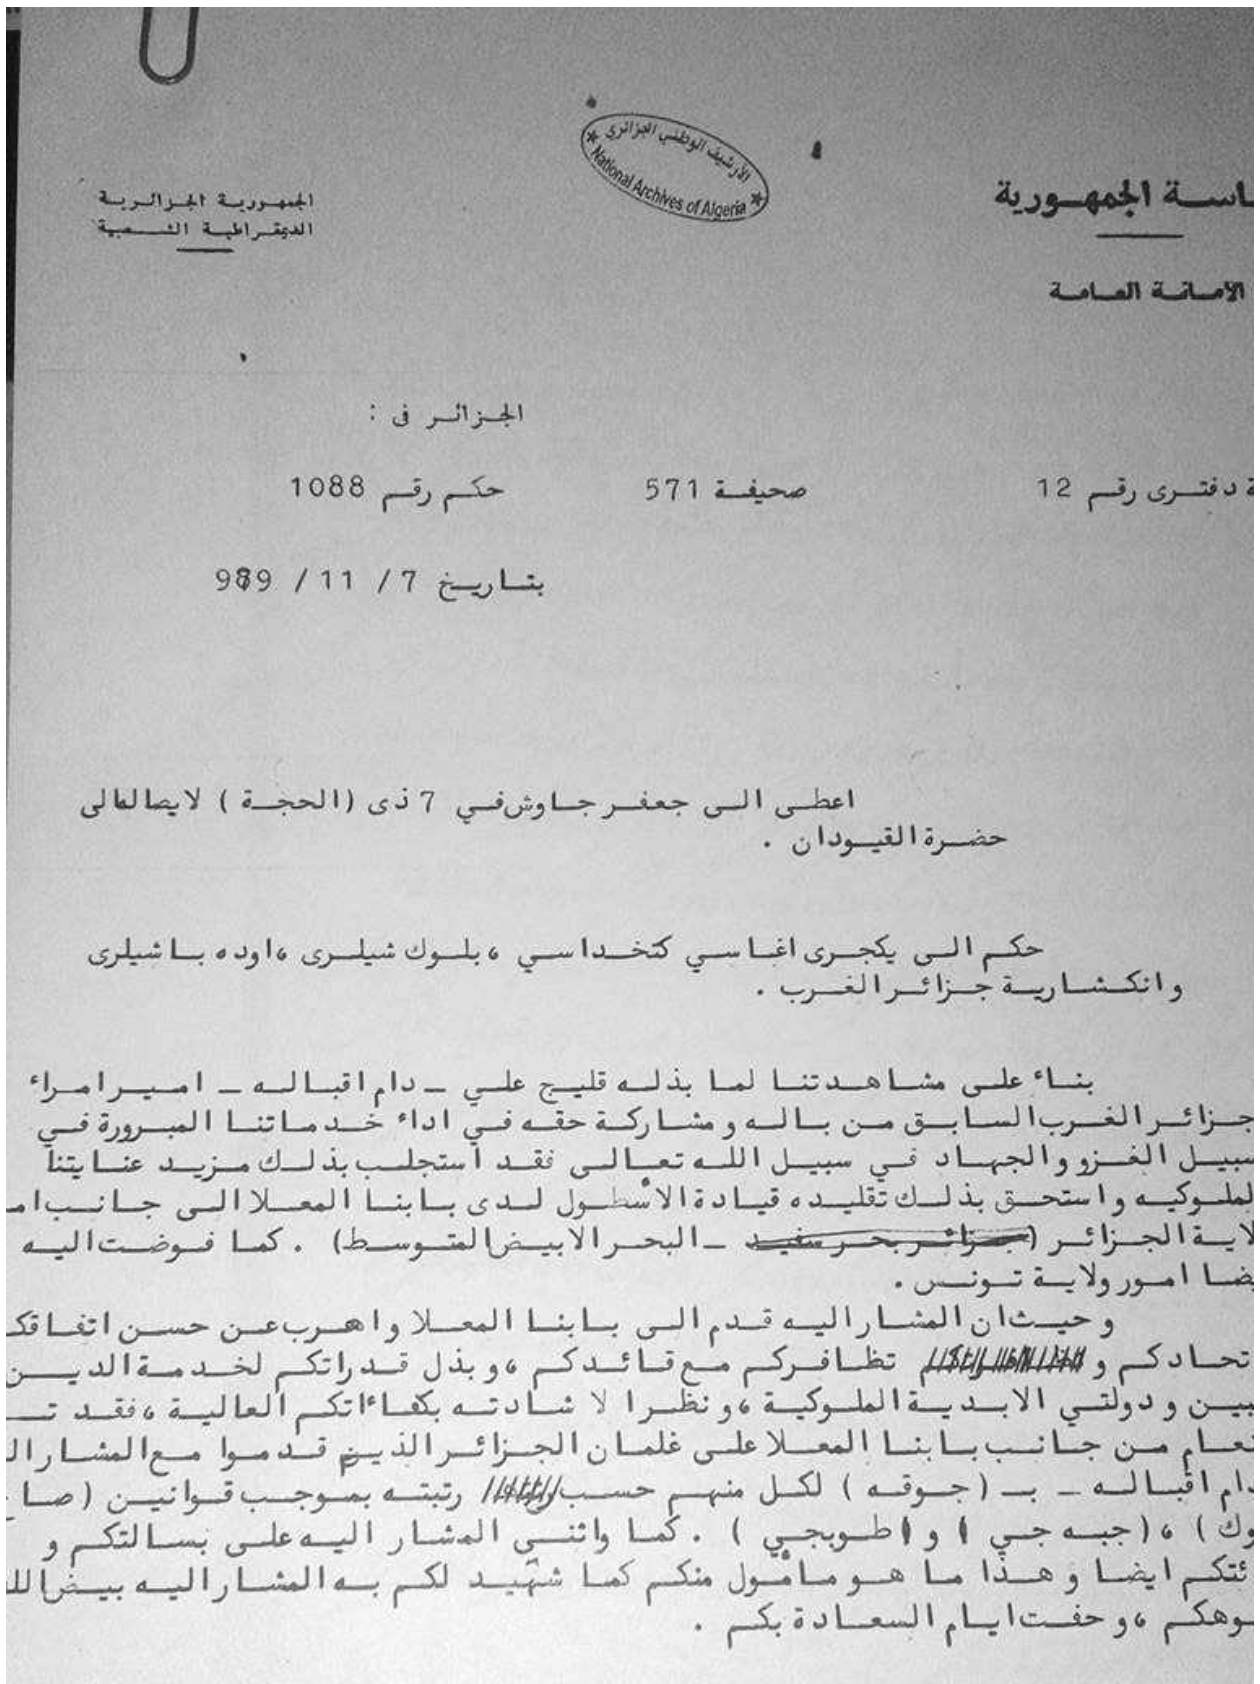 الأرشيف الوطني الجزائري
National Archives of Algeria
ـاسـة الجمهـورية
الجمهـوريـة الجـزائـريـة
الديمقـراطيـة الشـعبية
الامـانـة العـامـة
الجـزائـر فى :
ة دفتـرى رقـم 12 صحيفـة 571 حكـم رقـم 1088
بتـاريـخ 7 / 11 / 989
اعطـى الـى جعفـر جـاوش فـي 7 ذى (الحجـة ) لايصالها الى
حضـرة القبـودان .
حكـم الـى يكجـرى اغـاسـي كتخـداسـي ، بلـوك شيلـرى ، اوده بـاشيلرى
و انكـشـاريـة جـزائـر الغـرب .
بنـاء علـى مشـاهـدتنـا لمـا بذلـه قليـج علـي ـ دام اقبـالـه ـ اميـر امـراء
جـزائـر الغـرب السـابـق مـن بـالـه و مشـاركـة حقـه فـي اداء خـدمـاتنـا المبـرورة فـي
سبيـل الغـزو و الجهـاد فـي سبيـل اللـه تعـالـى فقـد استجلـب بذلـك مـزيـد عنـايتنا
لملـوكيـه و استحـق بذلـك تقليـده قيـادة الأسطـول لـدى بـابنـا المعـلا الـى جـانـب امـ
لايـة الجـزائـر (جـزائـر بحـر سفيـد ـ البحـر الابيـض المتـوسـط) . كمـا فـوضـت اليـه
يضـا امـور ولايـة تـونـس .
و حيـث ان المشـار اليـه قـدم الـى بـابنـا المعـلا و اهـرب عـن حسـن اتفـاقكـ
تحـادكـم و تظـافـركـم مـع قـائـدكـم ، و بـذل قـدراتكـم لخـدمـة الديـن
ـبيـن و دولتـي الابـديـة الملـوكيـة ، و نظـرا لا شـادتـه بكفـاءاتكـم العـاليـة ، فقـد تـ
نعـام مـن جـانـب بـابنـا المعـلا علـى غلمـان الجـزائـر الذيـن قـدمـوا مـع المشـار الـ
دام اقبـالـه ـ بـ (جـوقـه ) لكـل منهـم حسـب رتبتـه بمـوجـب قـوانيـن (صـا
وك ) ، (جبـه جـي ) و (طـوبجـي ) . كمـا واثنـى المشـار اليـه علـى بسـالتكـم و
ئتكـم ايضـا و هـذا مـا هـو مـأمـول منكـم كمـا شهـيـد لكـم بـه المشـار اليـه بيـض اللـ
ـوهكـم ، و حفـت ايـام السعـادة بكـم .